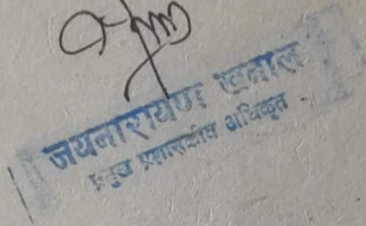 जयनारायण खनाल
प्रमुख प्रशासकीय अधिकृत